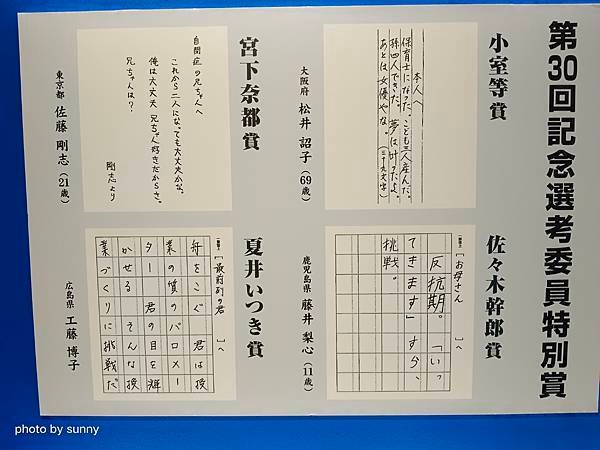 第30回記念選考委員特別賞
小室等賞
本人へ
保育士になった。こども三人産んだ。
孫四人できた。夢は叶ったよ。
あとは女優やな。(三十九文字)
大阪府 松井 詔子(69歳)
宮下奈都賞
自閉症の兄ちゃんへ
これから二人になっても大丈夫かな。
俺は大丈夫 兄ちゃん好きだからさ。
兄ちゃんは?
剛志より
東京都 佐藤 剛志(21歳)
佐々木幹郎賞
[お母さん]へ
反抗期。「いっ
てきます」すら、
挑戦。
鹿児島県 藤井 梨心(11歳)
夏井いつき賞
[最前列の君]へ
舟をこぐ 君は授
業の質のバロメー
ター 君の目を輝
かせる そんな授
業づくりに挑戦だ
広島県 工藤 博子
photo by sunny